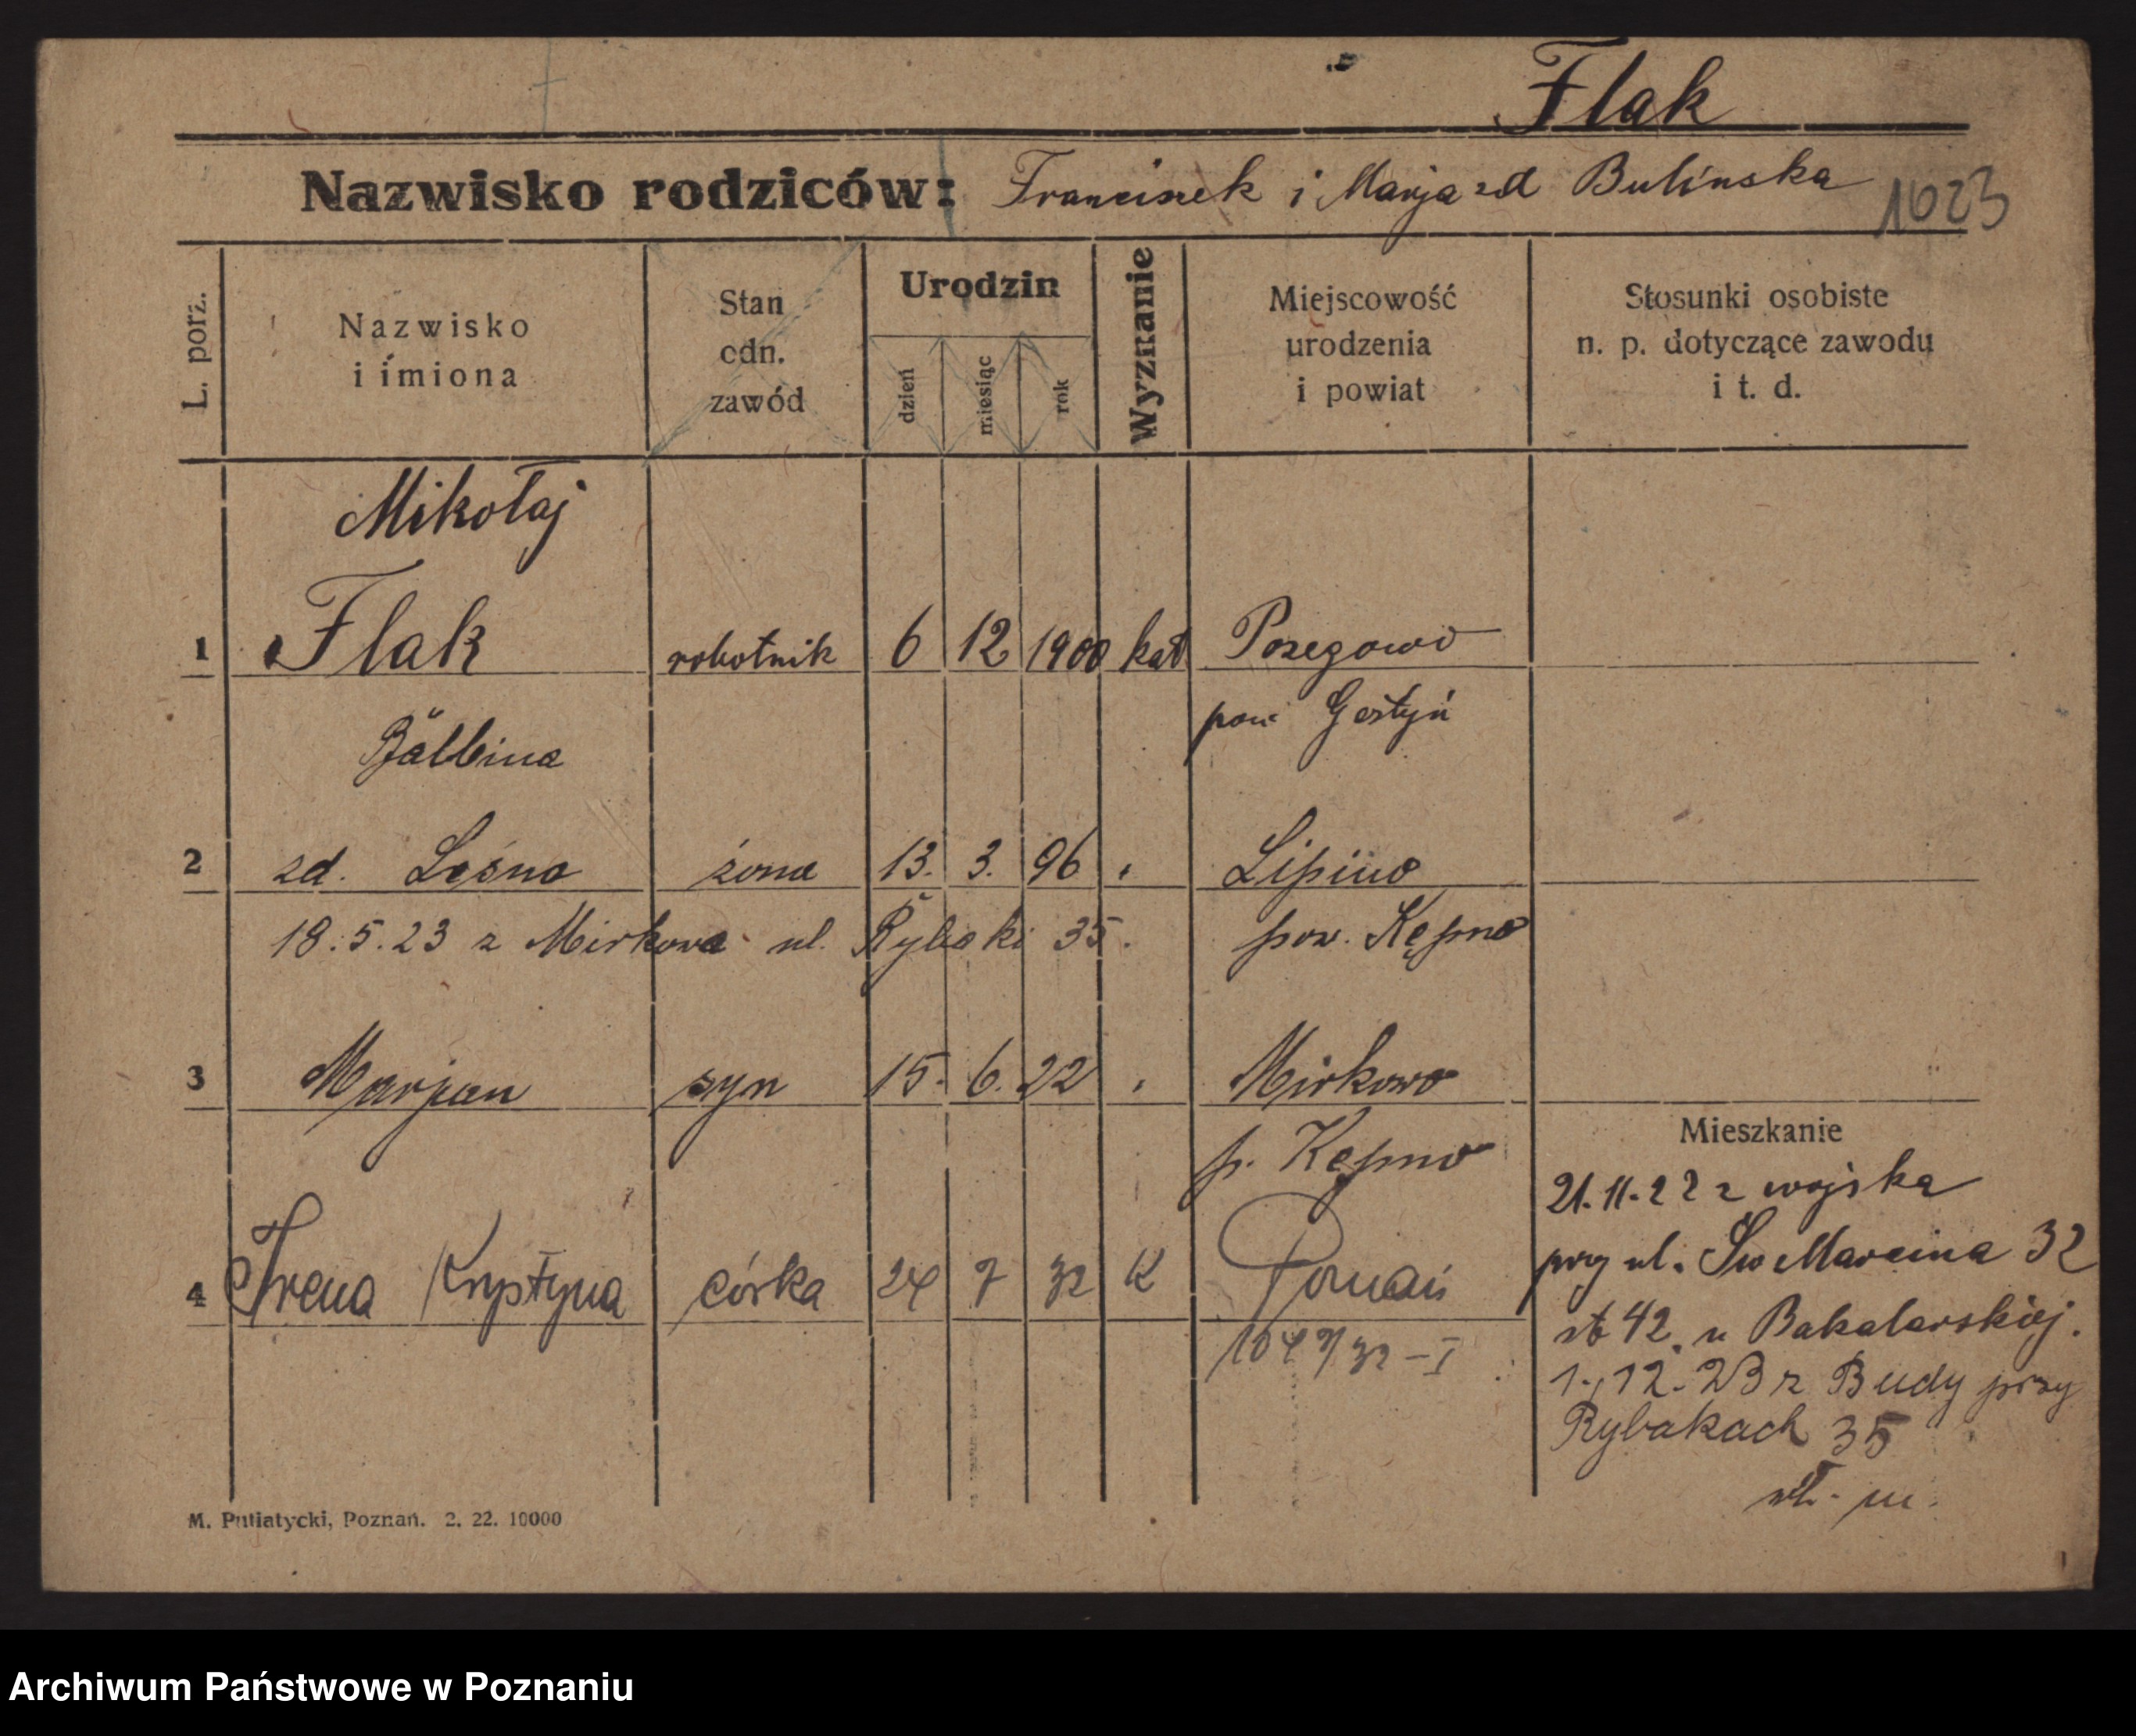 Flak
Nazwisko rodziców: Franciszek i Marja zd Bulinska 1623
L. porz.
Nazwisko
i imiona
Stan
odn.
zawód
Urodzin
dzień
miesiąc
rok
Wyznanie
Miejscowość
urodzenia
i powiat
Stosunki osobiste
n. p. dotyczące zawodu
i t. d.
Mikołaj
1 Flak robotnik 6 12 1900 kat Pozegowo
pow Gostyń
Balbina
2 zd. Leśna żona 13. 3. 96 Lipino
18.5.23 z Mirkowa ul. Rybaki 35. pow. Kępno
3 Marjan syn 15. 6. 22 Mirkowo
p. Kępno
4 Irena Krystyna córka 24 7 32 K Poznań
/32 - I
Mieszkanie
21.11.22 z wojska
przy ul. Św Marcina 32
42. u Bakalarskiej.
1.12.23 z Budy przy
Rybakach 35
M. Putiatycki, Poznań. 2. 22. 10000
Archiwum Państwowe w Poznaniu